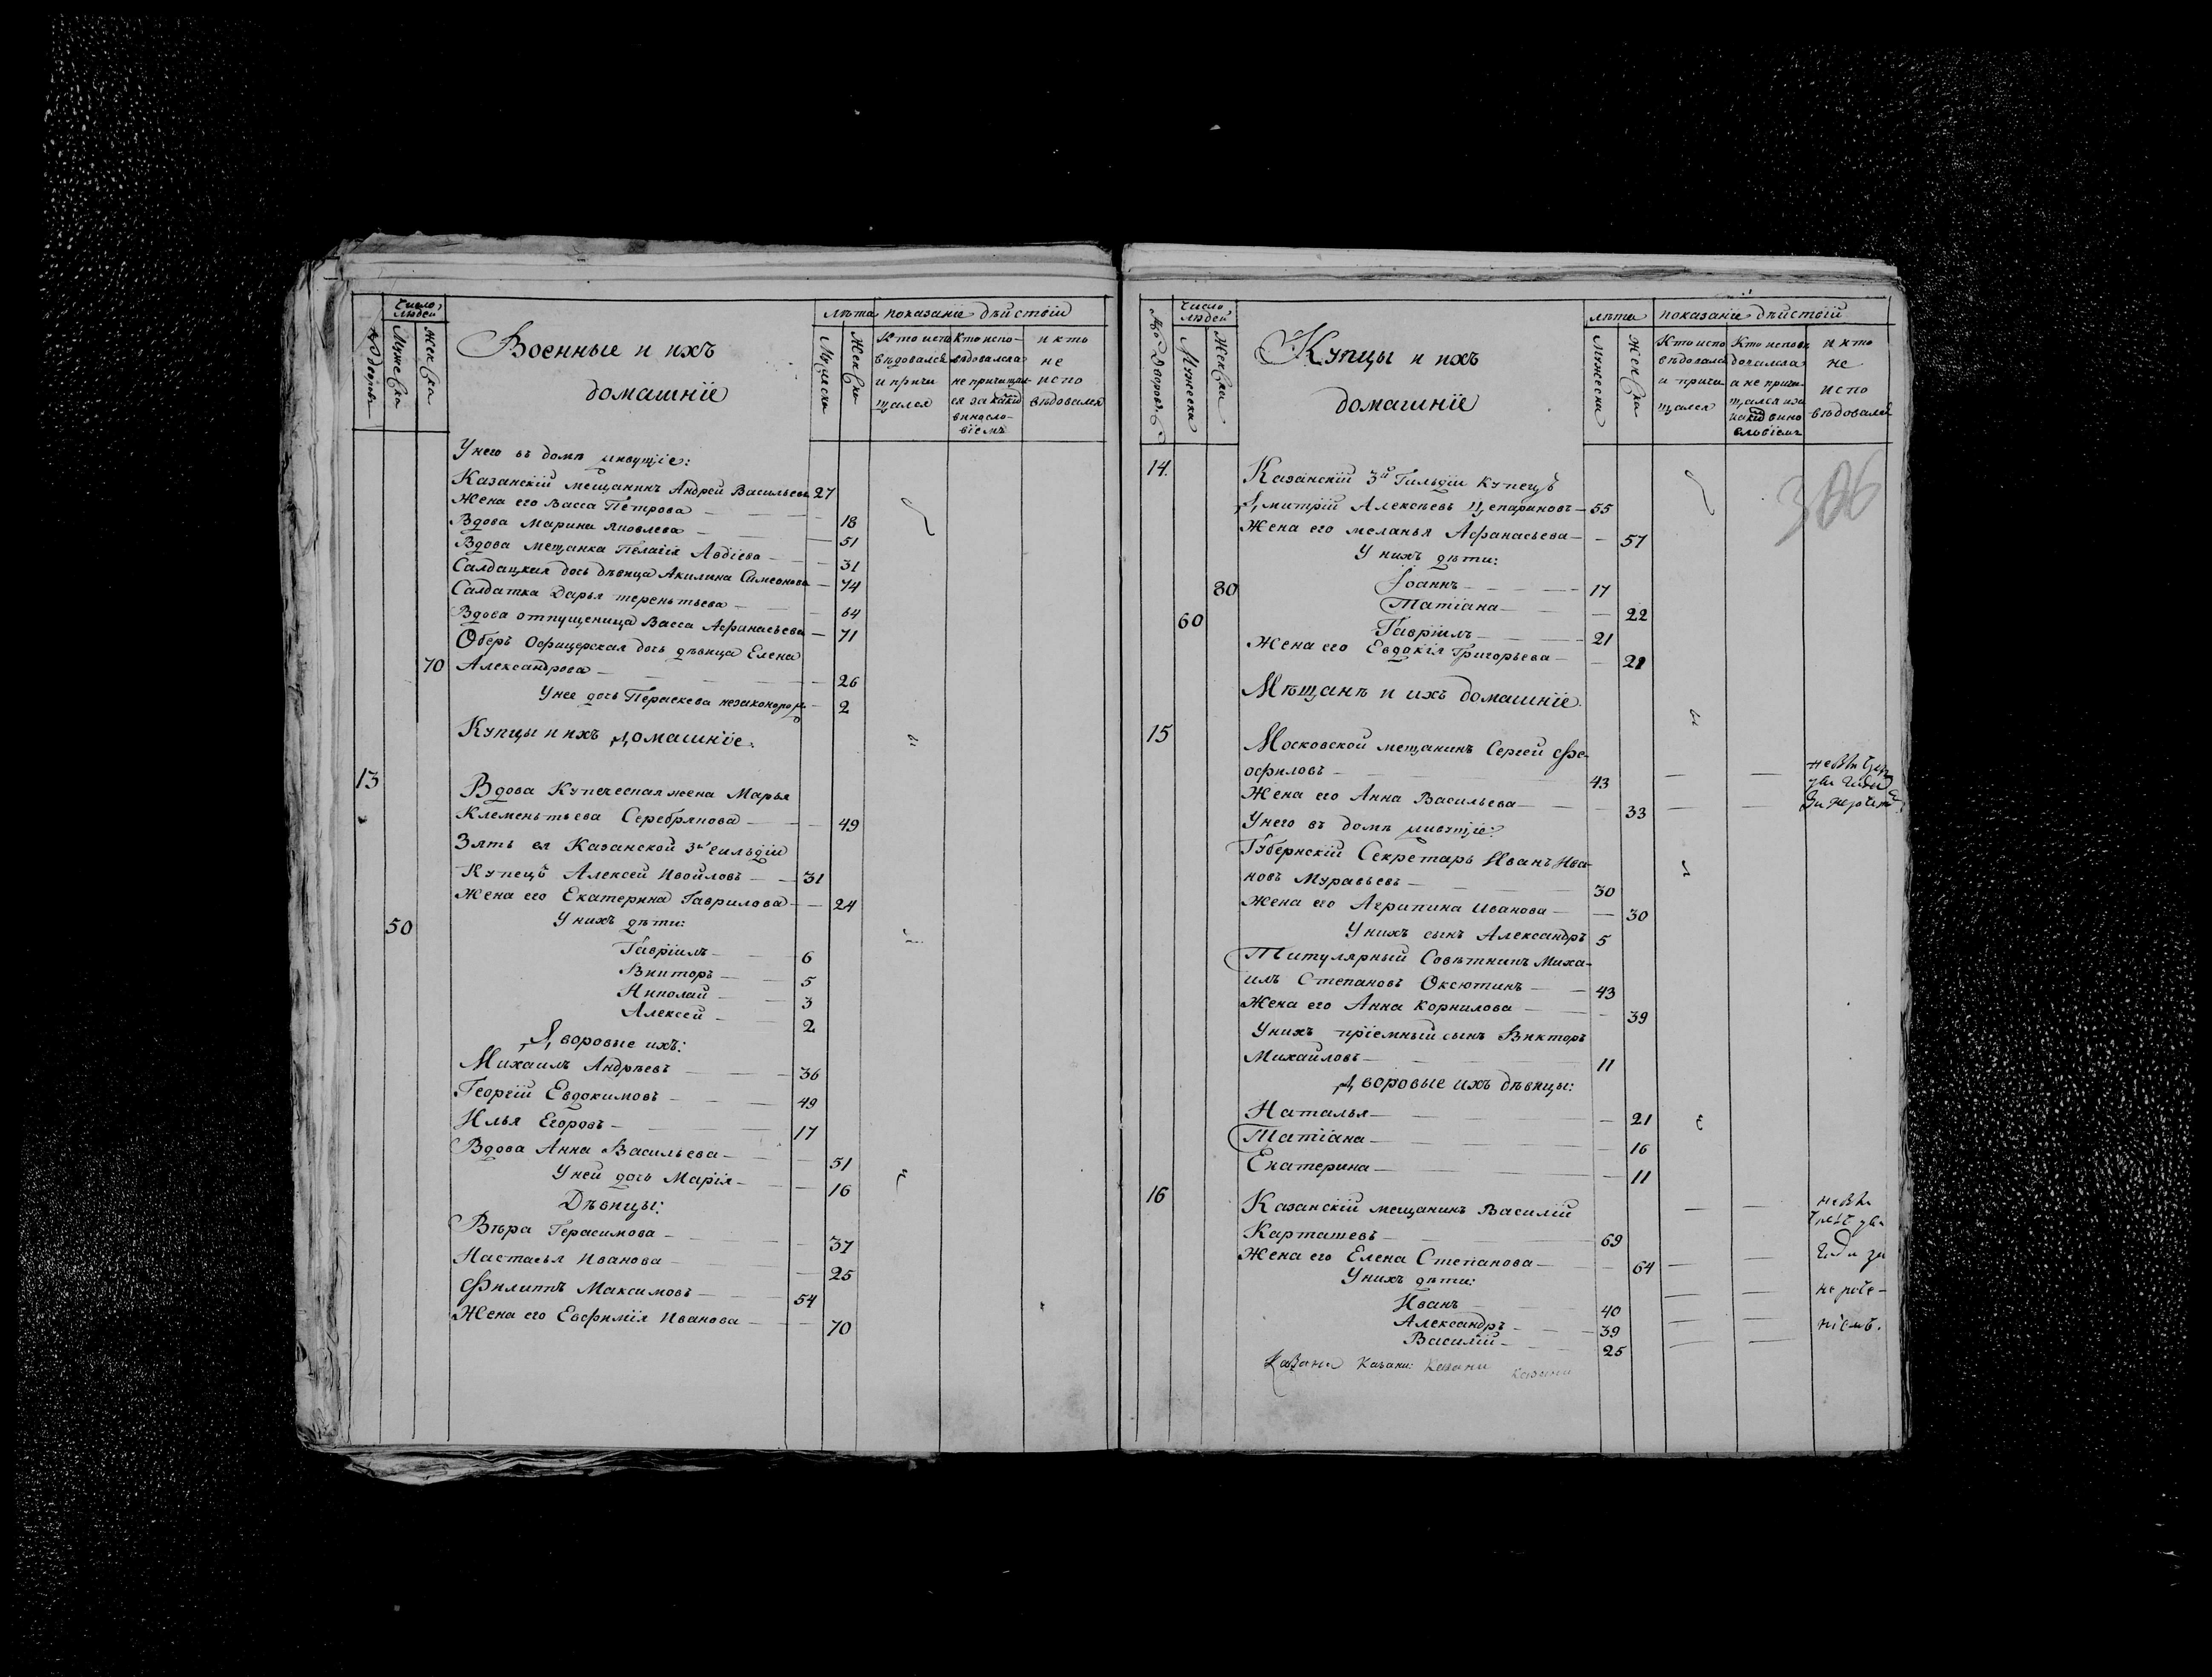 Число людей
лѣта показаніе дѣйствій
Мужеска
Женска
Военные и ихъ
домашніе
Мужеска
Женска
Кто испо
вѣдовался
и прича
щался
Кто испо-
вѣдовался
не причащал-
ся за какѝ
винос-
ловіемъ
и кто
не
испо
вѣдовался
У него въ домѣ живущіе:
Казанскій мещанинъ Андрей Васильевъ 27
Жена его Васса Петрова 18
Вдова Марина Яковлева 51
Вдова мещанка Пелагія Авдіева 31
Салдацкая дочь дѣвица Акилина Симеонова 74
Салдатка Дарья терентьева 64
Вдова отпущеница Васса Афанасьева 71
Оберъ Офицерская дочь дѣвица Елена
70 Александрова 26
У нее дочь Параскева незаконорож 2
Купцы и ихъ домашніе.
13 Вдова Купеческая жена Марья
Клементьева Серебрякова 49
Зять ея Казанской 3й гильдіи
Купецъ Алексей Ивойловъ 31
Жена его Екатерина Гаврилова 24
50 У нихъ дѣти:
Гавріилъ 6
Викторъ 5
Николай 3
Алексей 2
Дворовые ихъ:
Михаилъ Андрѣевъ 36
Георгій Евдокимовъ 49
Илья Егоровъ 17
Вдова Анна Васильева 51
У ней дочь Марія 16
Дѣвицы:
Вѣра Герасимова 37
Настасья Иванова 25
Филиппъ Максимовъ 54
Жена его Евфимія Иванова 70
Число людей
лѣта показаніе дѣйствій
№ дворовъ
Мужеска
Женска
Купцы и ихъ
домашніе
Мужеска
Женска
Кто испо
вѣдовался
и прича
щался
Кто исповѣ
довался
а не прича
щался
вино
словіемъ
и кто
не
испо
вѣдовался
306
14. Казанскій 3й Гильдіи Купецъ
Дмитрій Алексѣевъ 55
Жена его меланья Афанасьева 57
У нихъ дѣти:
80 Іоаннъ 17
Татіана 22
60 Гавріилъ 21
Жена его Евдокія Григорьева 21
Мѣщанѣ и ихъ домашніе.
15 Московской мещанинъ Сергей Фе-
офиловъ 43
Жена его Анна Васильева 33
У него въ домѣ живущіе:
Губернскій Секретарь Иванъ Ива-
новъ Муравьевъ 30
Жена его Агрипина Иванова 30
У нихъ сынъ Александръ 5
Титулярный Совѣтникъ Миха-
илъ Степановъ Оксютинъ 43
Жена его Анна Корнилова 39
У нихъ пріемный сынъ Викторъ
Михайловъ 11
Дворовые ихъ дѣвицы:
Наталья 21
Татіана 16
Екатерина 11
16 Казанскій мещанинъ Василій
Карташевъ 69
Жена его Елена Степанова 64
У нихъ дѣти:
Иванъ 40
Александръ 39
Василій 25
Казани Казани: Казани Казани